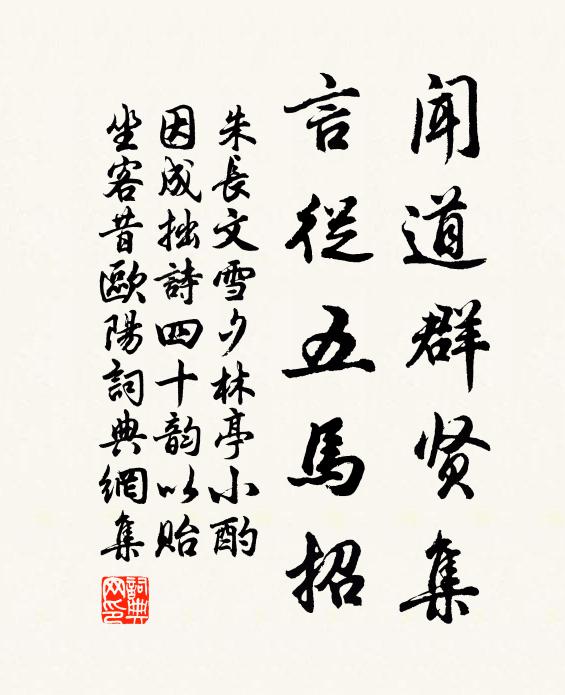 闻道群贤集
言從五馬招
朱長文雪夕林亭小酌
因成拙詩四十韵以貽
坐客昔歐陽詞典網集
詞典网印